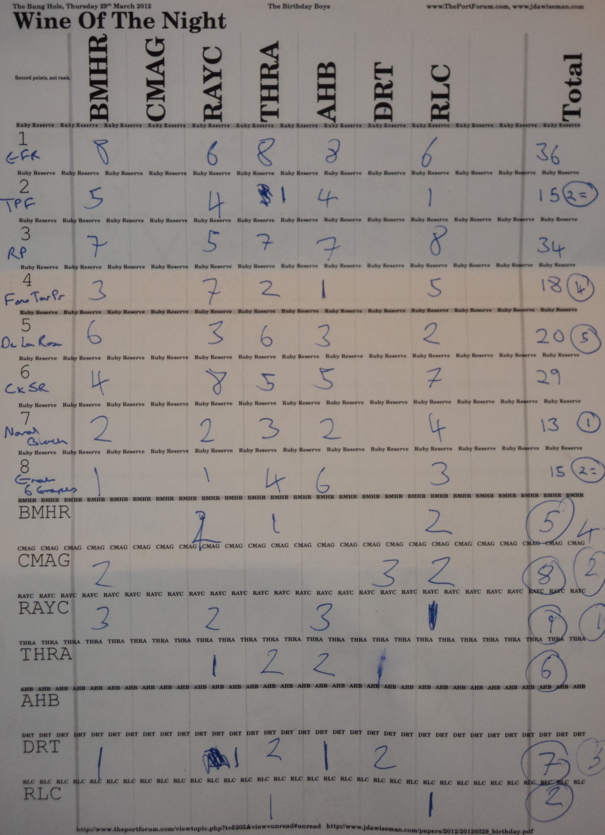 The Bung Hole, Thursday 29th March 2012 The Birthday Boys www.ThePortForum.com, www.jdawiseman.com
Wine Of The Night
Record points, not rank. BMHR CMAG RAYC THRA AHB DRT RLC Total
Ruby Reserve Ruby Reserve Ruby Reserve Ruby Reserve Ruby Reserve Ruby Reserve Ruby Reserve Ruby Reserve Ruby Reserve Ruby Reserve Ruby Reserve Ruby Reserve Ruby Reserve
1 GFR 8 6 8 8 6 36
2 TPF 5 4 1 4 1 15 2=
3 RP 7 5 7 7 8 34
4 3 7 2 1 5 18 4
5 De La Rosa 6 3 6 3 2 20 5
6 CKSR 4 8 5 5 7 29
7 2 2 3 2 4 13 1
8 Graham 6 Grapes 1 1 4 6 3 15 2=
BMHR 2 1 2 5 4
CMAG 2 3 2 8 2
RAYC 3 2 3 9 1
THRA 1 2 2 1 6
AHB
DRT 1 1 2 1 2 7 3
RLC 1 1 2